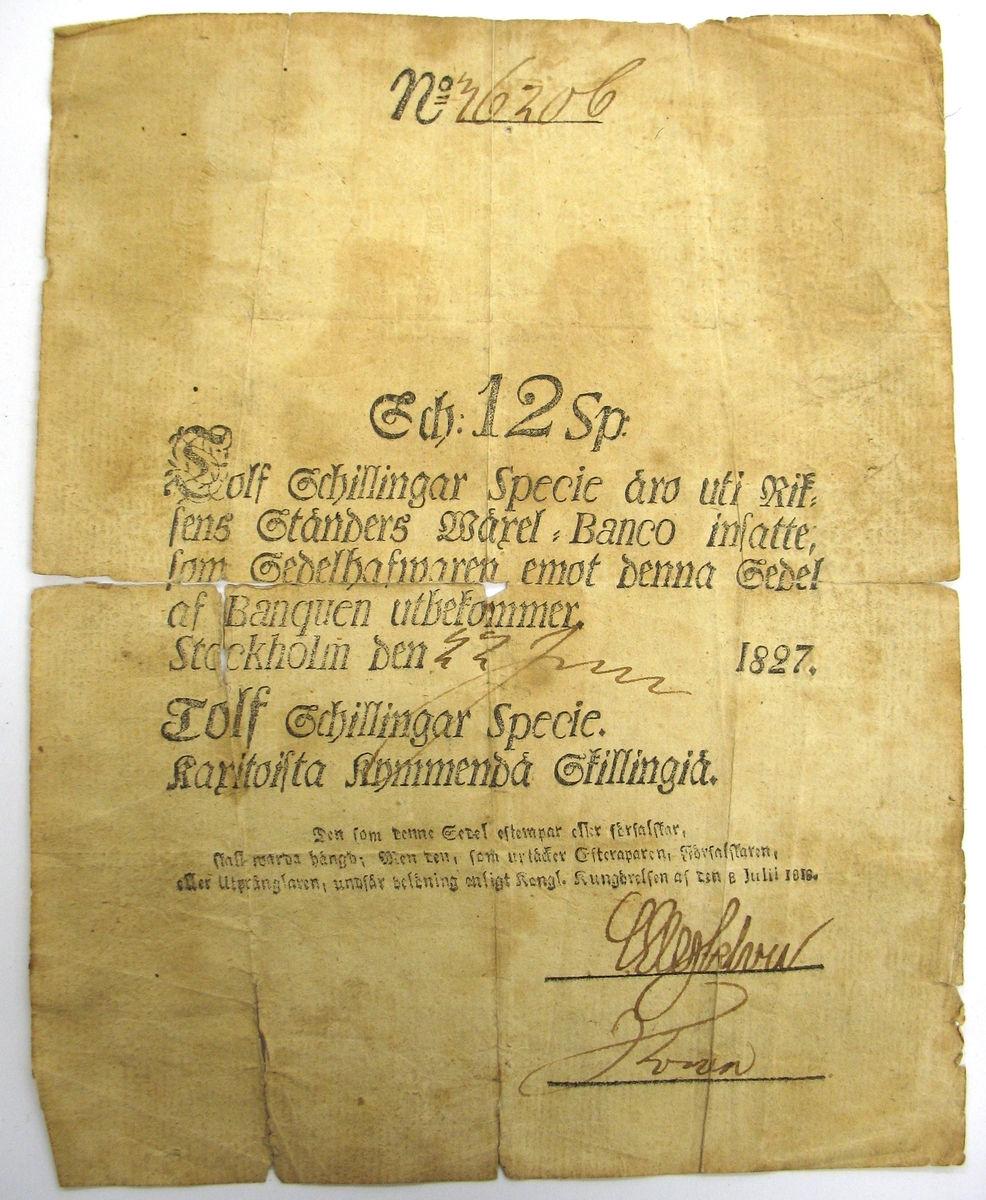 No 36206
Sch: 12 Sp:
Tolf Schillingar Specie äro uti Rik-
sens Ständers Wäxel-Banco insatte,
som Sedelhafwaren emot denna Sedel
af Banquen utbekommer.
Stockholm den 22 Jun 1827.
Tolf Schillingar Specie.
Kaxitoista Kymmendä Skillingiä.
Den som denne Sedel eftempar eller förfalskar,
skall warda hängd; Men den, som urtäcker Efteraparen, Förfalskaren,
eller Utprånglaren, undfår belöning enligt Kongl. Kungörelsen af den 8 Julii 1818.